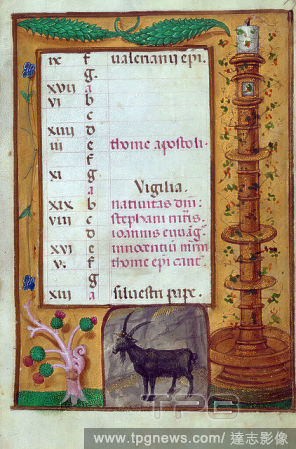 ix f valeriani epi.
g.
xvii a
vi b
c
xiiii d
iii e thome apostoli.
f
xi g
a Vigilia.
xix b nativitas dni:
viii c stephani mris.
d ioannis euāg:
xvi e innocentiū mrm
v. f thome epi cant
g
xiii a silvestri pape.
TPG
www.tpgnews.com/達志影像